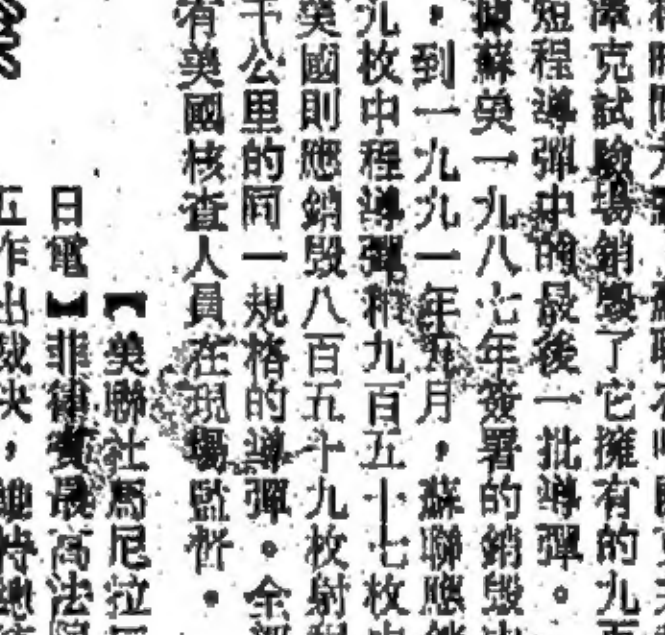 澤克試驗場銷毀了它擁有的九
短程導彈中的最後一批導彈。
據蘇美一九八七年簽署的銷毀
，到一九九一年五月，蘇聯應
九枚中程導彈和九百五十七枚
美國則應銷毀八百五十九枚射程
千公里的同一規格的導彈。全
有美國核查人員在現場監督。
【美聯社馬尼拉
日電】菲律賓最高法院
五作出裁決，維持總